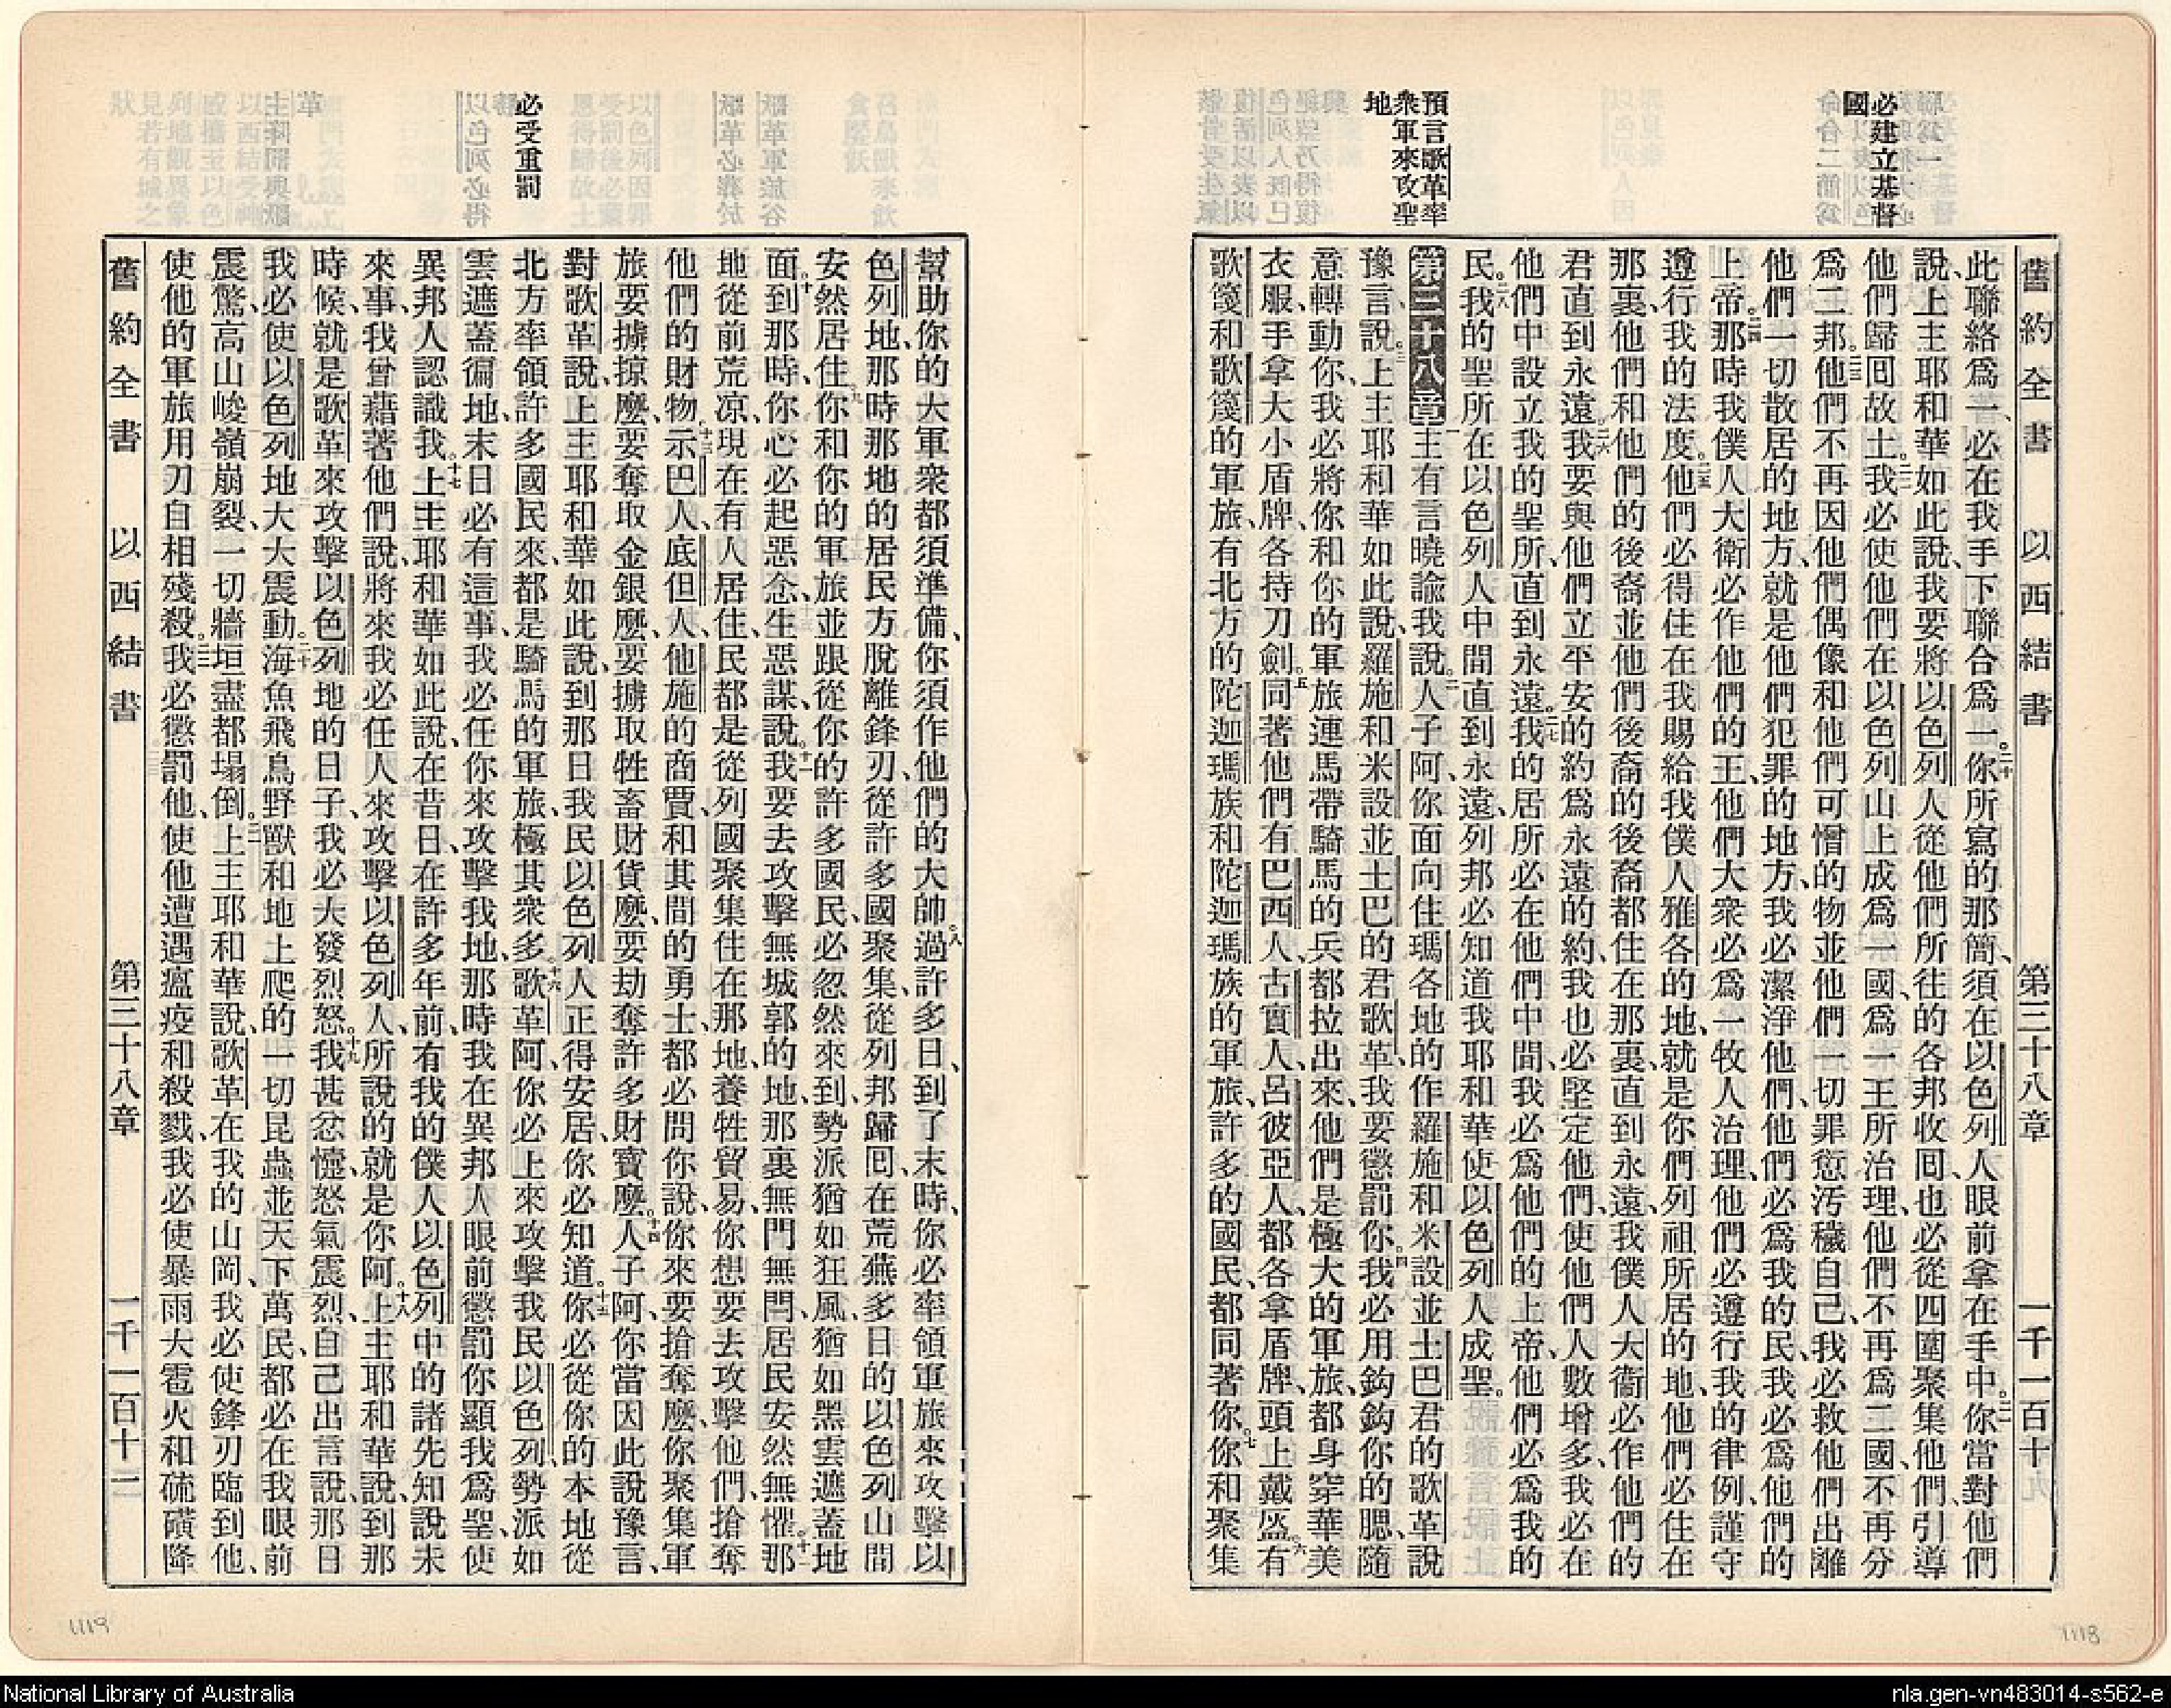 必建立基督
國
預言歌革率
衆軍來攻聖
地
舊約全書 以西結書 第三十八章 一千一百十
此聯絡爲一、必在我手下聯合爲一。二十你所寫的那簡、須在以色列人眼前拿在手中。二一你當對他們
說、上主耶和華如此說、我要將以色列人從他們所往的各邦收回、也必從四圍聚集他們、引導
他們歸回故土。二二我必使他們在以色列山上成爲一國、爲一王所治理、他們不再爲二國、不再分
爲二邦。二三他們不再因他們偶像和他們可憎的物並他們一切罪愆汚穢自己、我必救他們出離
他們一切散居的地方、就是他們犯罪的地方、我必潔淨他們、他們必爲我的民、我必爲他們的
上帝。二四那時我僕人大衛必作他們的王、他們大衆必爲一牧人治理、他們必遵行我的律例、謹守
遵行我的法度。二五他們必得住在我賜給我僕人雅各的地、就是你們列祖所居的地、他們必住在
那裏、他們和他們的後裔並他們後裔的後裔都住在那裏直到永遠、我僕人大衞必作他們的
君直到永遠。二六我要與他們立平安的約爲永遠的約、我也必堅定他們、使他們人數增多、我必在
他們中設立我的聖所、直到永遠。二七我的居所必在他們中間、我必爲他們的上帝、他們必爲我的
民。二八我的聖所在以色列人中間直到永遠、列邦必知道我耶和華使以色列人成聖。
第三十八章一主有言曉諭我說。二人子阿、你面向住瑪各地的作羅施和米設並土巴君的歌革說
豫言、說。三上主耶和華如此說、羅施和米設並土巴的君歌革、我要懲罰你。四我必用鈎鈎你的腮、隨
意轉動你、我必將你和你的軍旅連馬帶騎馬的兵都拉出來、他們是極大的軍旅、都身穿華美
衣服、手拿大小盾牌、各持刀劍。五同著他們有巴西人、古實人、呂彼亞人、都各拿盾牌、頭上戴盔。六有
歌箋和歌箋的軍旅、有北方的陀迦瑪族和陀迦瑪族的軍旅、許多的國民、都同著你。七你和聚集
必受重罰
幫助你的大軍衆都須準備、你須作他們的大帥。八過許多日、到了末時、你必率領軍旅來攻擊以
色列地、那時那地的居民方脫離鋒刃、從許多國聚集、從列邦歸回、在荒蕪多日的以色列山間
安然居住。九你和你的軍旅並跟從你的許多國民、必忽然來到、勢派猶如狂風、猶如黑雲遮蓋地
面。十到那時、你心必起惡念、生惡謀、說。十一我要去攻擊無城郭的地、那裏無門無閂、居民安然無懼。十二那
地從前荒涼、現在有人居住、民都是從列國聚集住在那地、養牲貿易、你想要去攻擊他們、搶奪
他們的財物。十三示巴人、底但人、他施的商賈、和其間的勇士、都必問你說、你來要搶奪麼、你聚集軍
旅要擄掠麼、要奪取金銀麼、要擄取牲畜財貨麼、要劫奪許多財寶麼。十四人子阿、你當因此說豫言、
對歌革說、上主耶和華如此說、到那日我民以色列人正得安居、你必知道。十五你必從你的本地從
北方率領許多國民來、都是騎馬的軍旅、極其衆多。十六歌革阿、你必上來攻擊我民以色列、勢派如
雲遮蓋徧地、末日必有這事、我必任你來攻擊我地、那時我在異邦人眼前懲罰你、顯我爲聖、使
異邦人認識我。十七上主耶和華如此說、在昔日、在許多年前、有我的僕人以色列中的諸先知說未
來事、我曾藉著他們說、將來我必任人來攻擊以色列人、所說的就是你阿。十八上主耶和華說、到那
時候、就是歌革來攻擊以色列地的日子、我必大發烈怒。十九我甚忿懥、怒氣震烈、自己出言說、那日
我必使以色列地大大震動。二十海魚飛鳥野獸和地上爬的一切昆蟲並天下萬民、都必在我眼前
震驚、高山峻嶺崩裂、一切牆垣盡都塌倒。二一上主耶和華說、歌革在我的山岡、我必使鋒刃臨到他、
使他的軍旅用刃自相殘殺。二二我必懲罰他、使他遭遇瘟疫和殺戮、我必使暴雨大雹火和硫磺降
舊約全書 以西結書 第三十八章 一千一百十一
1119
1118
National Library of Australia
nla.gen-vn483014-s562-e